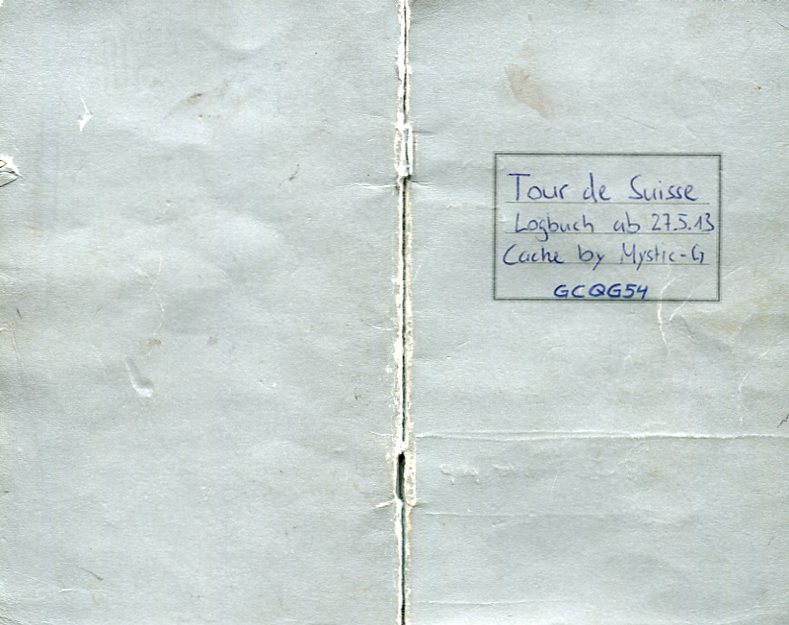 Tour de Suisse
Logbuch ab 27.5.13
Cache by Mystic-G
GCQG54